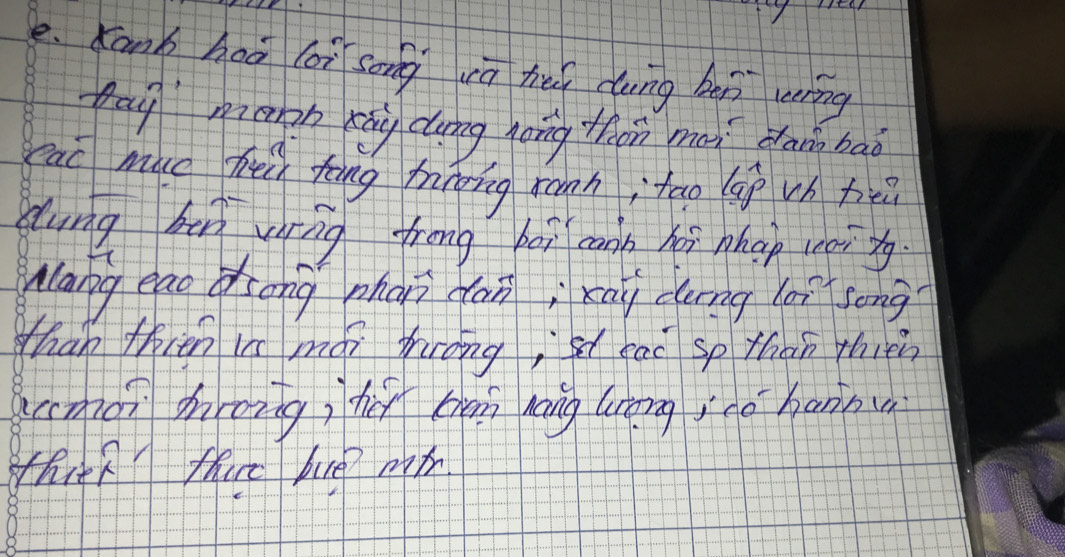 e. Xanh hoá lối sống và tiêu dùng bền vững
Đẩy mạnh xây dựng nông thôn mới đảm bảo
các mục tiêu tăng trưởng xanh; tạo lập vh tiêu
dùng bền vững trong bối cảnh hội nhập với tg.
Nâng cao đsống nhân dân; xây dựng lối sống
thân thiện vs môi trường; sd các sp thân thiện
vs môi trường; tiết kiệm năng lượng; có hành vi
thiết thực bvệ mtr.